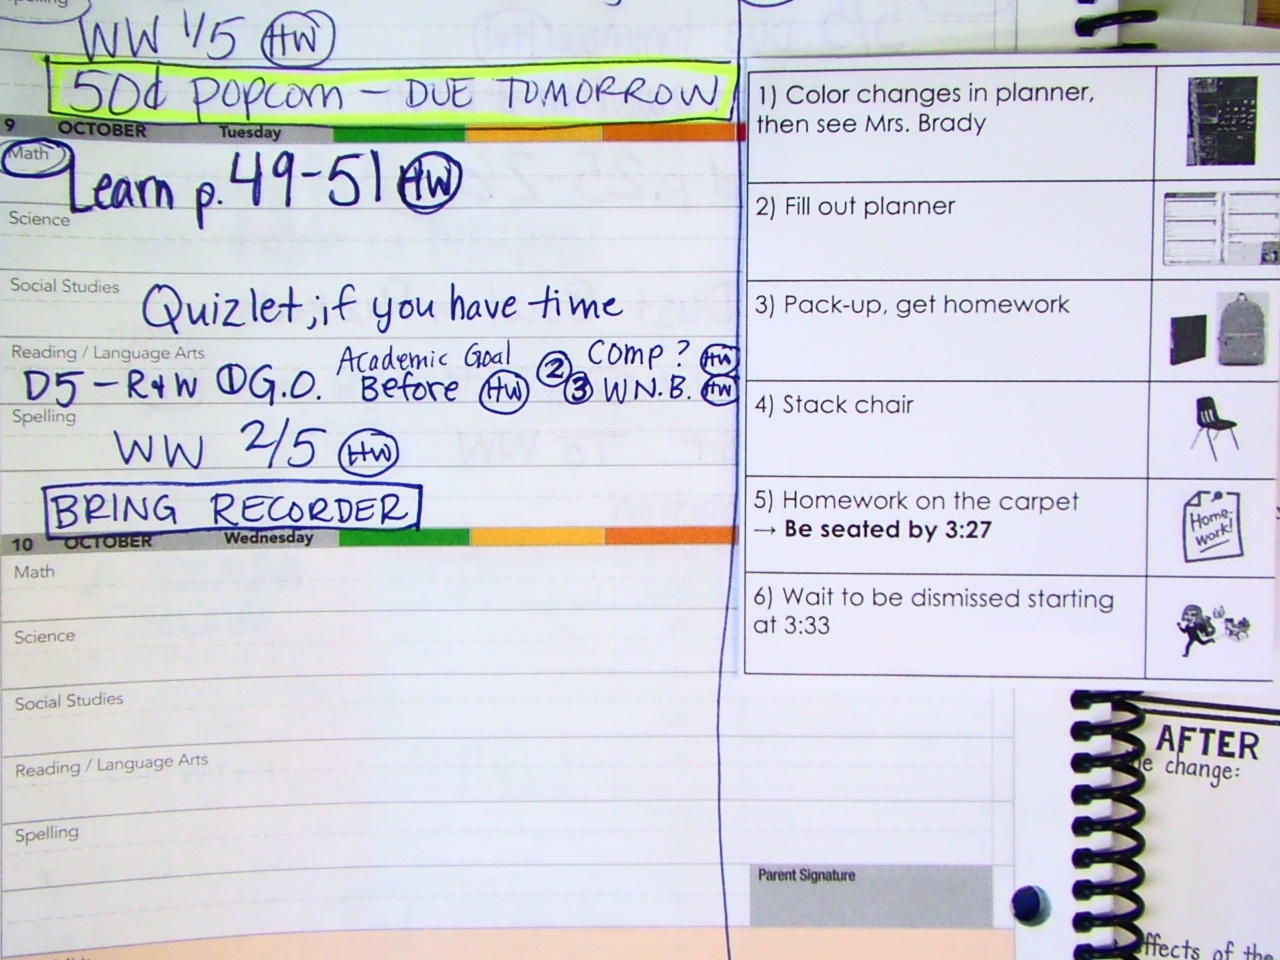 WW 1/5 HW
50¢ Popcorn - DUE TOMORROW
9 OCTOBER Tuesday
Math
Learn p. 49-51 HW
Science
Social Studies
Quizlet; if you have time
Reading / Language Arts
D5 - R+W ① G.O. Academic Goal Before HW ② Comp ? HW
③ W.N.B. HW
Spelling
WW 2/5 HW
BRING RECORDER
10 OCTOBER Wednesday
Math
Science
Social Studies
Reading / Language Arts
Spelling
Parent Signature
1) Color changes in planner,
then see Mrs. Brady
2) Fill out planner
3) Pack-up, get homework
4) Stack chair
5) Homework on the carpet
→ Be seated by 3:27
Home-
work!
6) Wait to be dismissed starting
at 3:33
AFTER
change:
of the